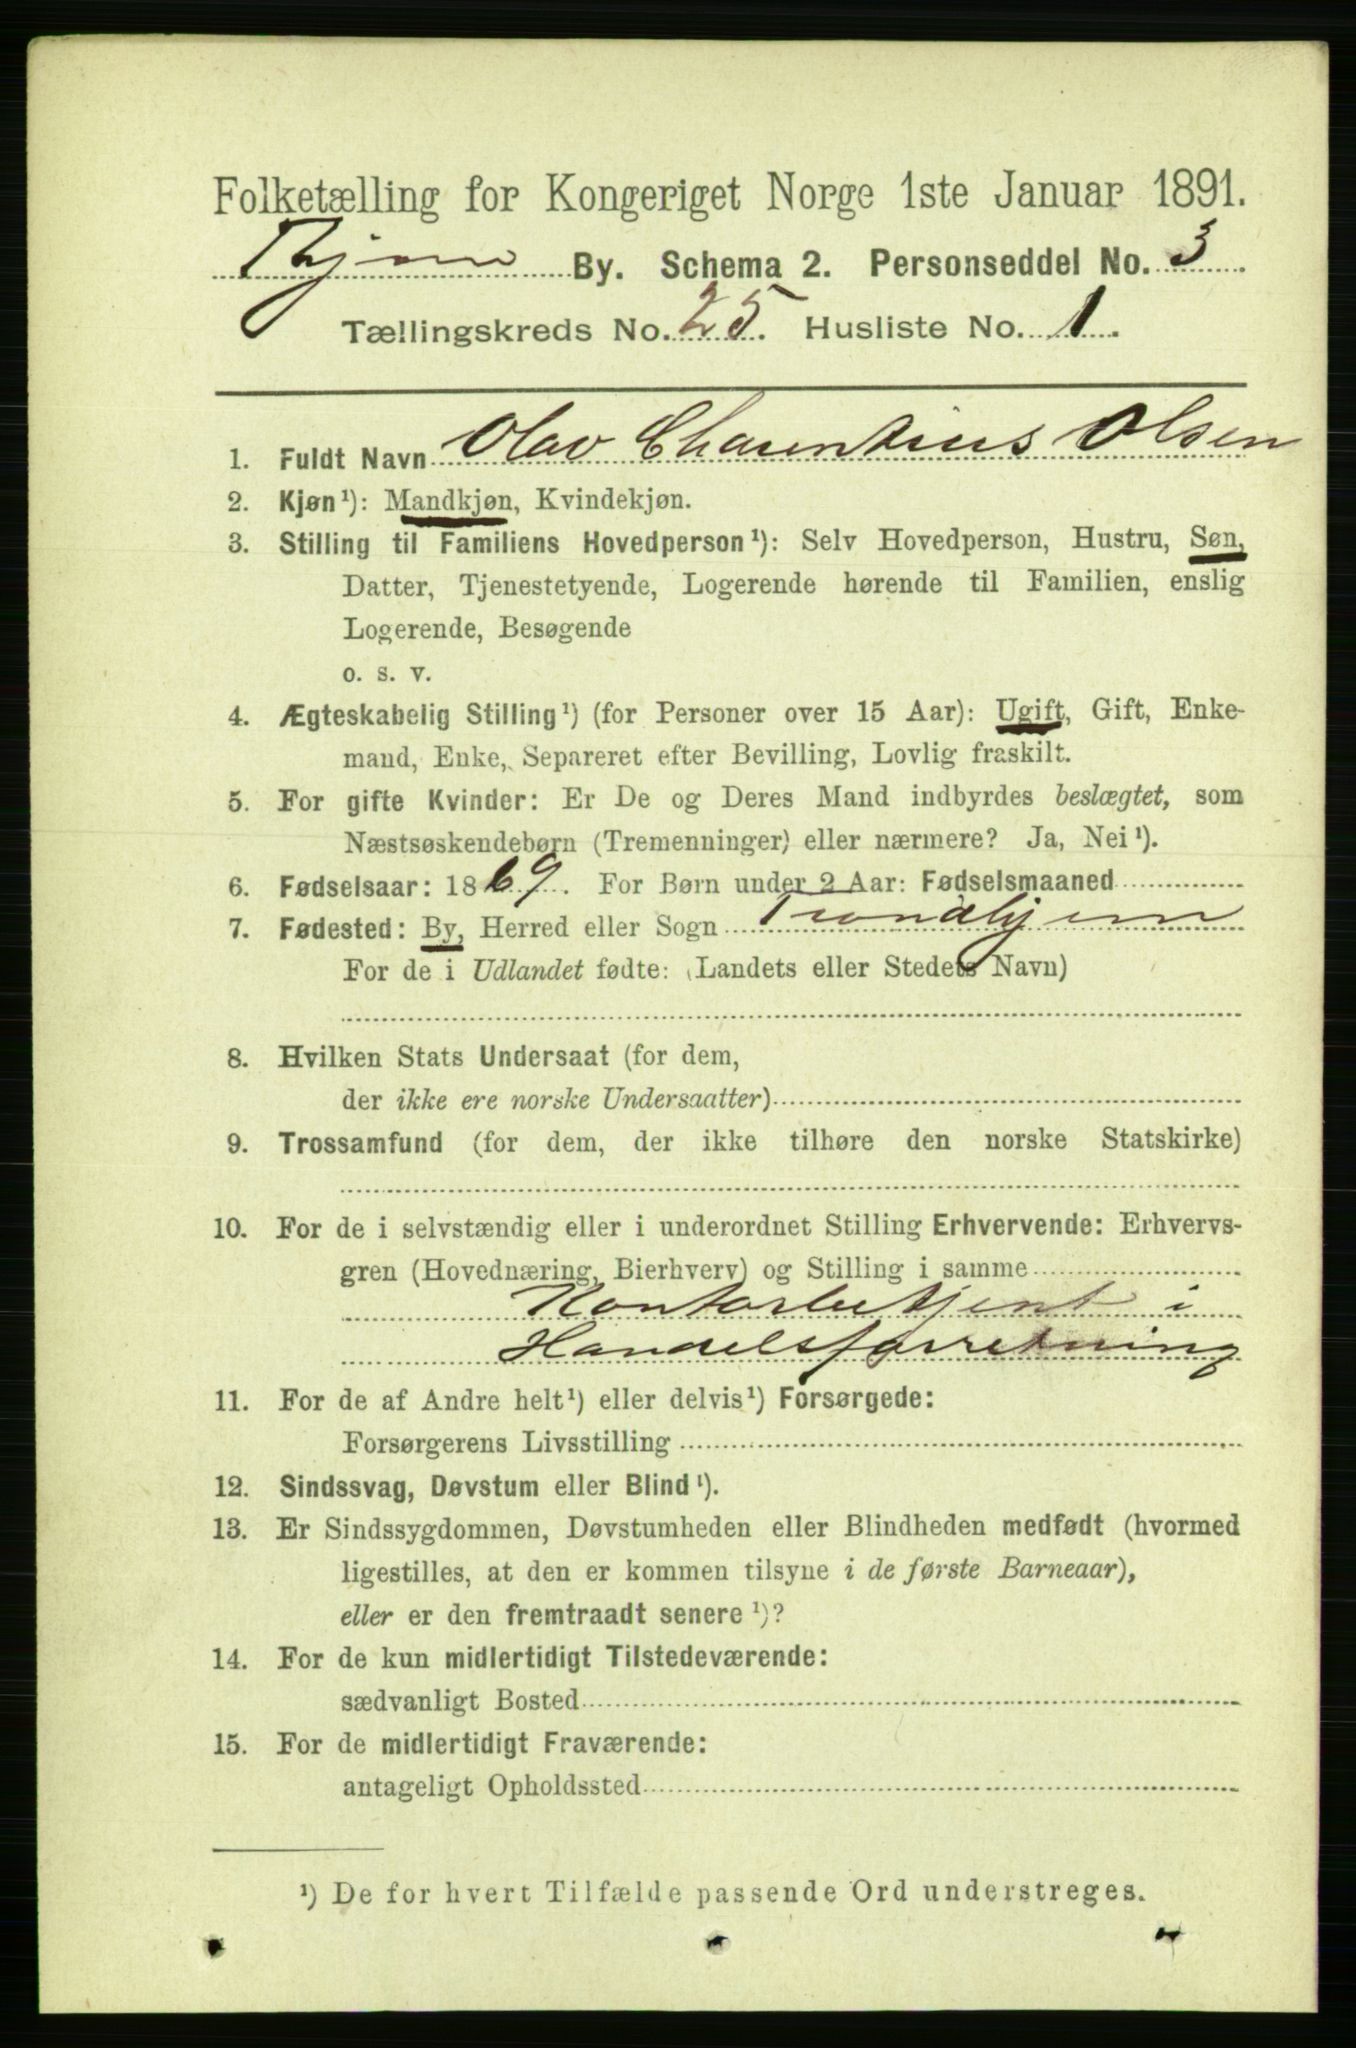 Folketælling for Kongeriget Norge 1ste Januar 1891.
Thjem By. Schema 2. Personseddel No. 3
Tællingskreds No. 25. Husliste No. 1.
1. Fuldt Navn Olav Charentius Olsen
2. Kjøn¹): Mandkjøn, Kvindekjøn.
3. Stilling til Familiens Hovedperson¹): Selv Hovedperson, Hustru, Søn,
Datter, Tjenestetyende, Logerende hørende til Familien, enslig
Logerende, Besøgende
o. s. v.
4. Ægteskabelig Stilling¹) (for Personer over 15 Aar): Ugift, Gift, Enke-
mand, Enke, Separeret efter Bevilling, Lovlig fraskilt.
5. For gifte Kvinder: Er De og Deres Mand indbyrdes beslægtet, som
Næstsøskendebørn (Tremenninger) eller nærmere? Ja, Nei¹).
6. Fødselsaar: 1869. For Børn under 2 Aar: Fødselsmaaned
7. Fødested: By, Herred eller Sogn Trondhjem
For de i Udlandet fødte: (Landets eller Stedets Navn)
8. Hvilken Stats Undersaat (for dem,
der ikke ere norske Undersaatter)
9. Trossamfund (for dem, der ikke tilhøre den norske Statskirke)
10. For de i selvstændig eller i underordnet Stilling Erhvervende: Erhvervs-
gren (Hovednæring, Bierhverv) og Stilling i samme
Kontorbetjent i
Handelsforretning
11. For de af Andre helt¹) eller delvis¹) Forsørgede:
Forsørgerens Livsstilling
12. Sindssvag, Døvstum eller Blind¹).
13. Er Sindssygdommen, Døvstumheden eller Blindheden medfødt (hvormed
ligestilles, at den er kommen tilsyne i de første Barneaar),
eller er den fremtraadt senere¹)?
14. For de kun midlertidigt Tilstedeværende:
sædvanligt Bosted
15. For de midlertidigt Fraværende:
antageligt Opholdssted
¹) De for hvert Tilfælde passende Ord understreges.